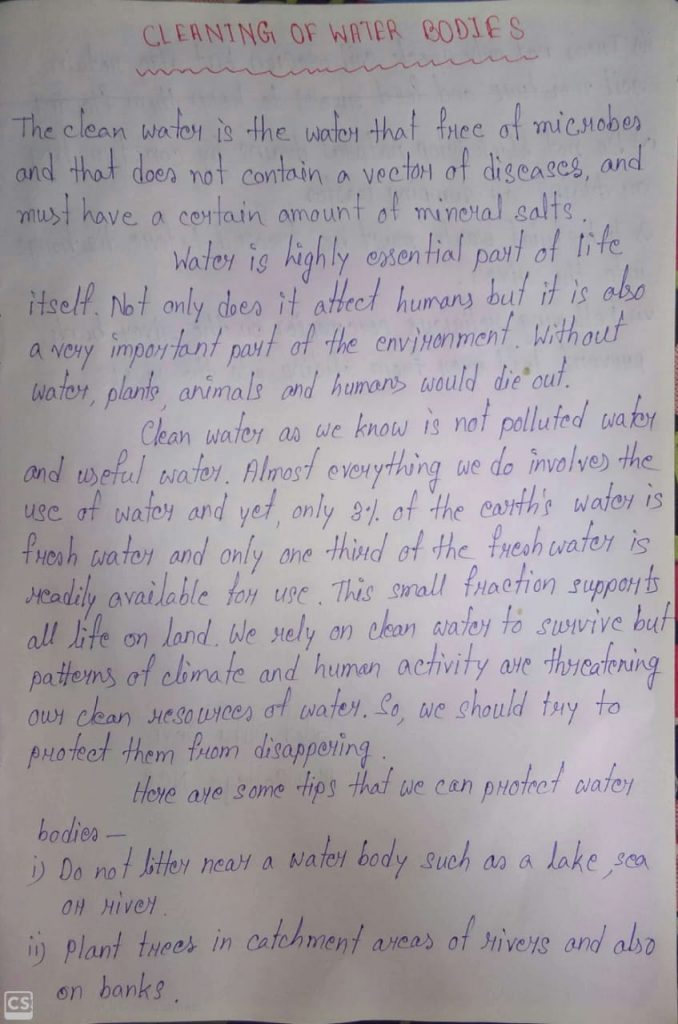 CLEANING OF WATER BODIES
The clean water is the water that free of microbes
and that does not contain a vector of diseases, and
must have a certain amount of mineral salts.
Water is highly essential part of life
itself. Not only does it affect humans but it is also
a very important part of the environment. Without
water, plants, animals and humans would die out.
Clean water as we know is not polluted water
and useful water. Almost everything we do involves the
use of water and yet, only 3% of the earth's water is
fresh water and only one third of the fresh water is
readily available for use. This small fraction supports
all life on land. We rely on clean water to survive but
patterns of climate and human activity are threatening
our clean resources of water. So, we should try to
protect them from disappering.
Here are some tips that we can protect water
bodies —
i) Do not litter near a water body such as a lake, sea
or river.
ii) Plant trees in catchment areas of rivers and also
on banks.
CS